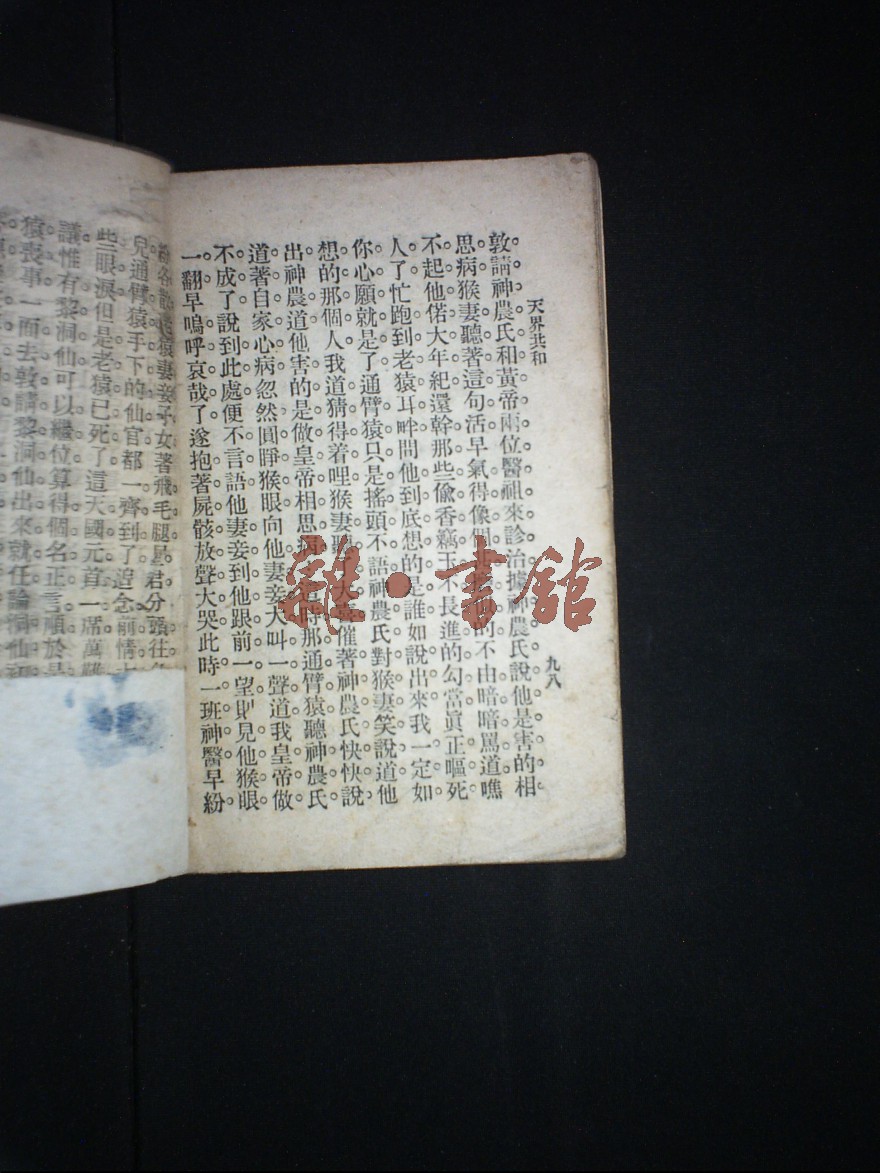 天界共和
九八
敦請神農氏和黃帝兩位醫祖來診治據神農氏說他是害的相
思病猴妻聽著這句活早氣得像個的不由暗暗罵道噍
不起他偌大年紀還幹那些偸香竊玉不長進的勾當眞正嘔死
人了忙跑到老猿耳畔問他到底想的是誰如說出來我一定如
你心願就是了通臂猿只是搖頭不語神農氏對猴妻笑說道他
想的那個人我道猜得着哩猴妻催著神農氏快快說
出神農道他害的是做皇帝相思病時那通臂猿聽神農氏
道著自家心病忽然圓睜猴眼向他妻妾大叫一聲道我皇帝做
不成了說到此處便不言語他妻妾到他跟前一望則見他猴眼
一翻早嗚呼哀哉了遂抱著屍骸放聲大哭此時一班神醫早紛
紛各散猿妻妾子女著飛毛腿星君分頭往
兒通臂猿手下的仙官都一齊到了追念前情
些眼淚但是老猿已死了這天國元首一席萬難
議惟有黎洞仙可以繼位算得個名正言順於是
猿喪事一面去敦請黎洞仙出來就任論洞仙
雜·書館